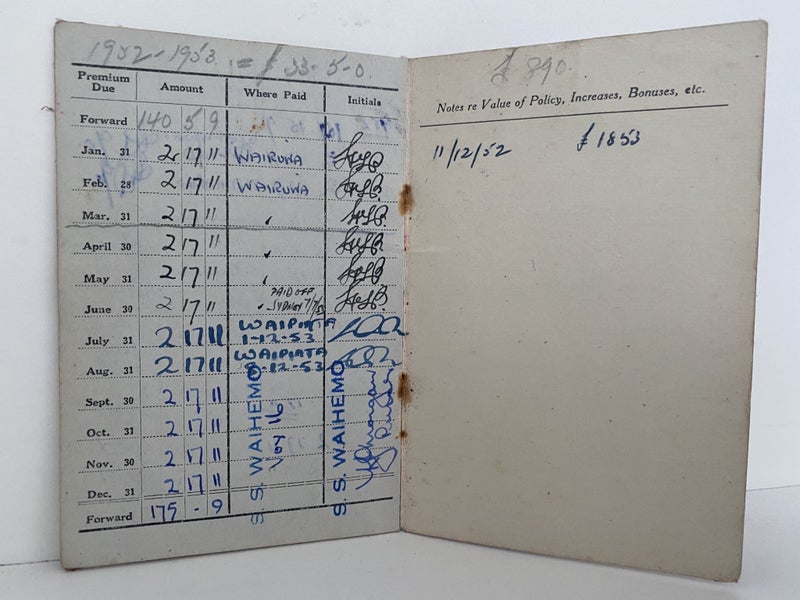 1952-1953 = £ 33-5-0.
Premium Due Amount Where Paid Initials
Forward 140 5 9
Jan. 31 2 17 11 WAIRUNA
Feb. 28 2 17 11 WAIRUNA
Mar. 31 2 17 11
April 30 2 17 11
May 31 2 17 11
June 30 2 17 11 PAID OFF SYDNEY
July 31 2 17 11 WAIPIATA 1-12-53
Aug. 31 2 17 11 WAIPIATA -12-53
Sept. 30 2 17 11
Oct. 31 2 17 11
Nov. 30 2 17 11
Dec. 31 2 17 11
Forward 175 - 9
S. S. WAIHEMO
Voy 16
S. S. WAIHEMO
£ 890
Notes re Value of Policy, Increases, Bonuses, etc.
11/12/52 £ 1853